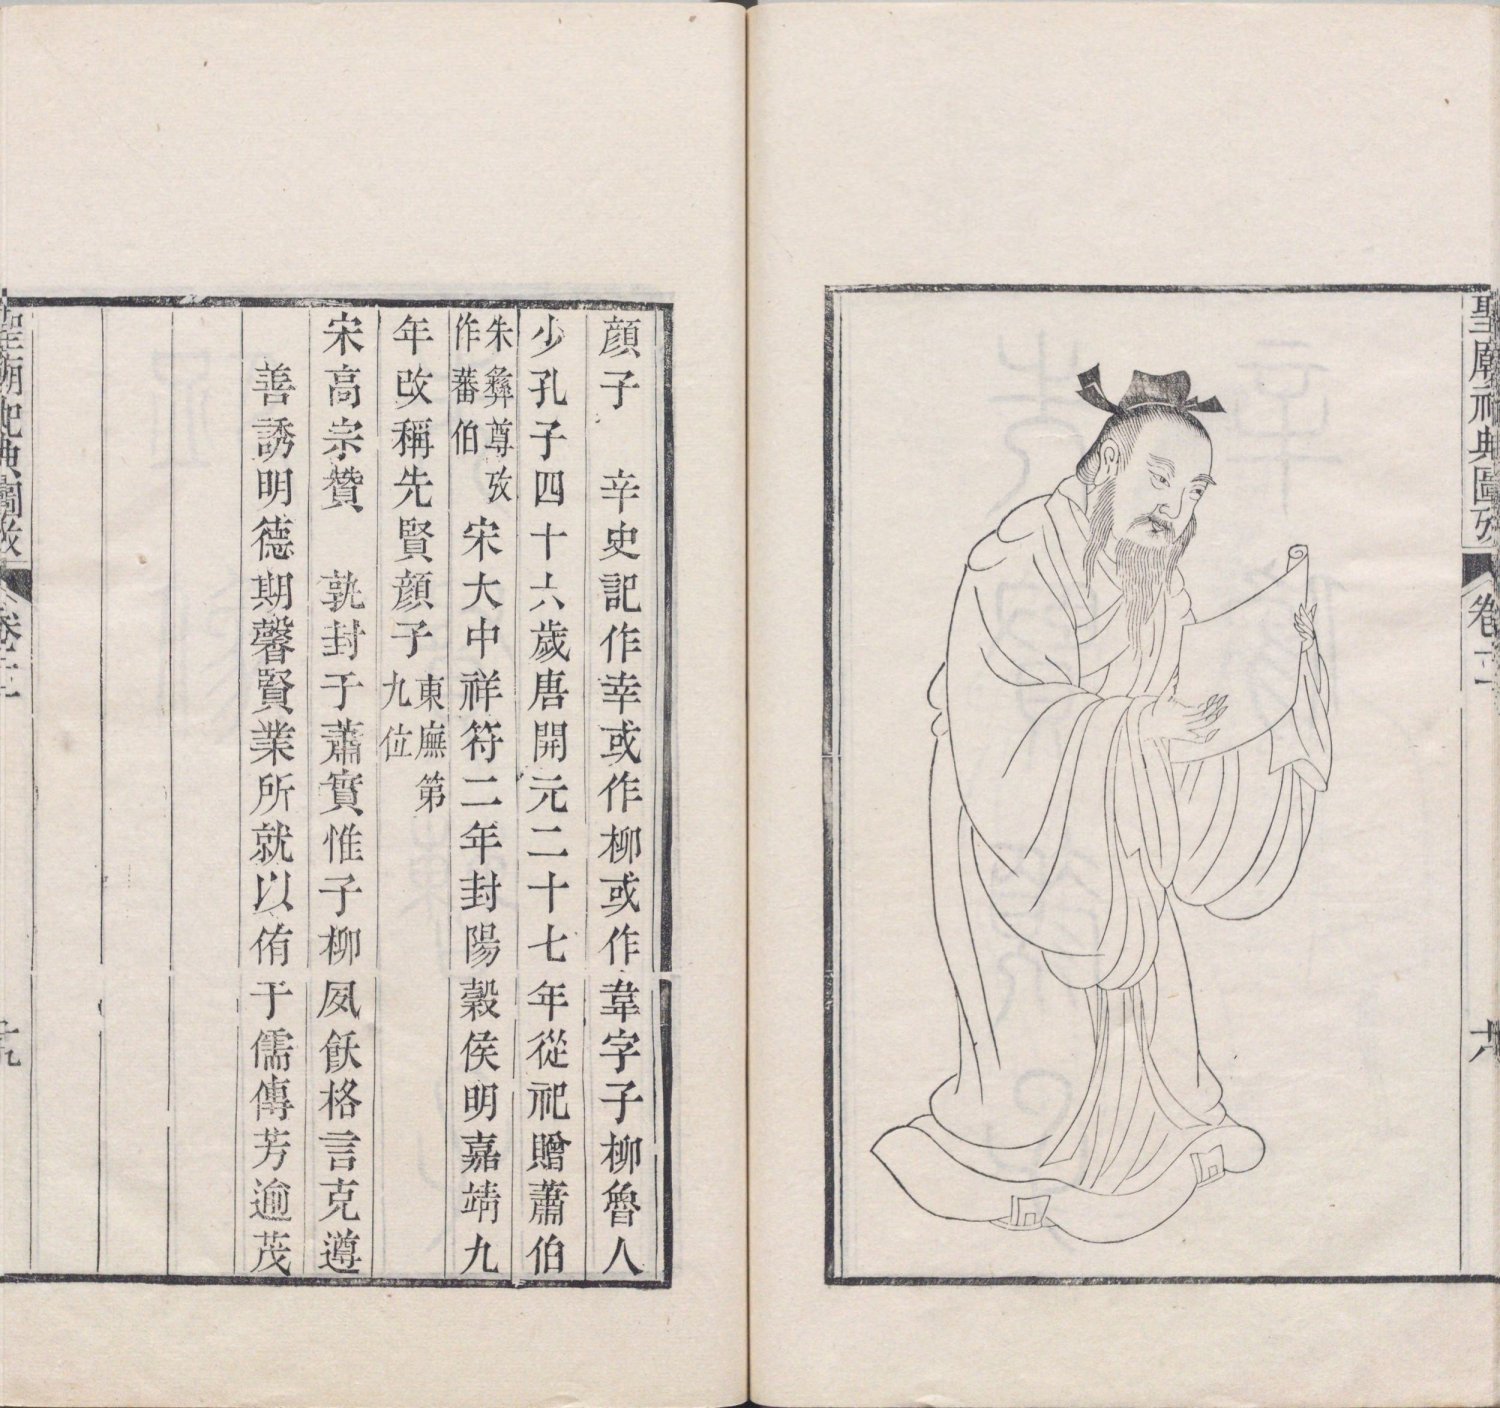 聖廟祀典圖攷
卷二
顔子　辛史記作幸或作柳或作韋字子柳魯人
少孔子四十六歲唐開元二十七年從祀贈蕭伯
朱彝尊攷
作蕃伯
宋大中祥符二年封陽穀侯明嘉靖九
年改稱先賢顔子
東廡第
九位
宋高宗贊　孰封于蕭實惟子柳夙飫格言克遵
善誘明德期馨賢業所就以侑于儒傳芳逾茂
聖廟祀典圖攷